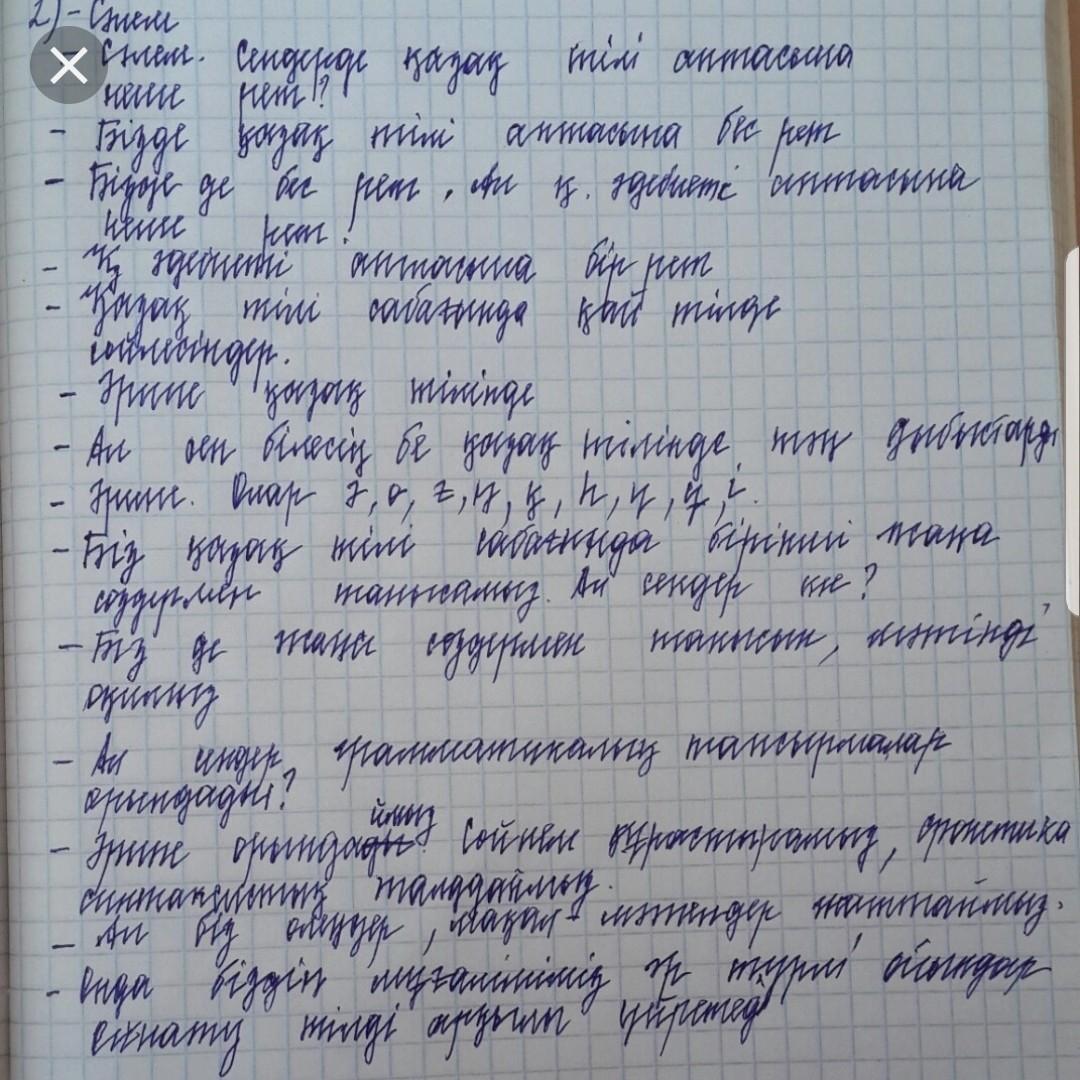 2) - Сәлем
- Сәлем. Сендерде қазақ тілі аптасына
неше рет?
- Бізде қазақ тілі аптасына бес рет
- Бізде де бес рет, Ал қ. әдебиеті аптасына
неше рет?
- Қ әдебиеті аптасына бір рет
- Қазақ тілі сабағында қай тілде
сөйлесіндер.
- Әрине қазақ тілінде
- Ал сен білесің бе қазақ тілінде тән дыбыстарды
- Әрине. Олар ә, ө, ғ, ң, қ, һ, ү, ұ, і.
- Біз қазақ тілі сабағында бірінші жаңа
сөздермен танысамыз. Ал сендер ше?
- Біз де жаңа сөздермен танысып, мәтінді
оқимыз
- Ал сендер грамматикалық тапсырмалар
орындады?
- Әрине орындаймыз. Сөйлем құрастырамыз, фонетика
синтаксистік талдаймыз.
- Ал біз өлеңдер, мақал-мәтендер жаттаймыз.
- Онда біздің мұғаліміміз әр түрлі ойындар
ойнату тілді арқылы үйретеді